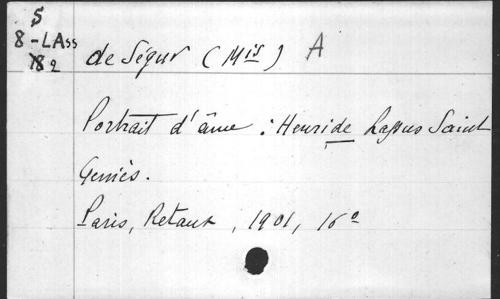 5
8-LAss
182
de Ségur (Mis) A
Portrait d'âme : Henri de Lassus Saint
Geniès.
Paris, Retaux, 1901, 16°